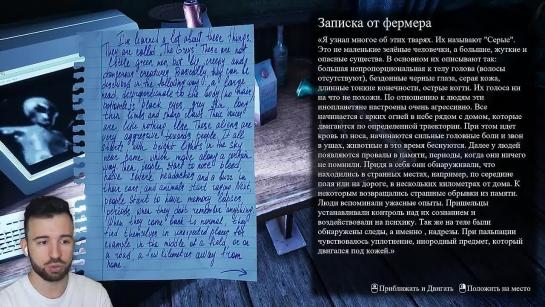 I've learned a lot about these things.
They are called "The Greys". These are not
little green men, but big, creepy and
dangerous creatures. Basically they can be
described in the following way: a large
head,
very aggressive towards people. It all
starts with bright lights in the sky
near home, which move along a certain
have severe headaches and a buzz in
their ears, and animals start raging. Next,
people start to have memory lapses,
periods when they can't remember anything.
When they come back to normal, they
find themselves in unexpected places, for
example in the middle of a field, or on
a road, a few kilometers away from
home.
Записка от фермера
«Я узнал многое об этих тварях. Их называют "Серые".
Это не маленькие зелёные человечки, а большие, жуткие и
опасные существа. В основном их описывают так:
большая непропорциональная к телу голова (волосы
отсутствуют), бездонные черные глаза, серая кожа,
длинные тонкие конечности, острые когти. Их голоса ни
на что не похожи. По отношению к людям эти
инопланетяне настроены очень агрессивно. Все
начинается с ярких огней в небе рядом с домом, которые
двигаются по определенной траектории. При этом идет
кровь из носа, начинаются сильные головные боли и звон
в ушах, животные в это время беснуются. Далее у людей
появляются провалы в памяти, периоды, когда они ничего
не помнили. Придя в себя они обнаруживали, что
находились в странных местах, например, по середине
поля или на дороге, в нескольких километрах от дома. К
некоторым возвращались страшные обрывки из памяти.
Люди вспоминали ужасные опыты. Пришельцы
устанавливали контроль над их сознанием и
воздействовали на психику. Так же на теле были
обнаружены следы, а именно , надрезы. При пальпации
чувствовалось уплотнение, инородный предмет, который
двигался под кожей.»
Приближать и Двигать
Положить на место